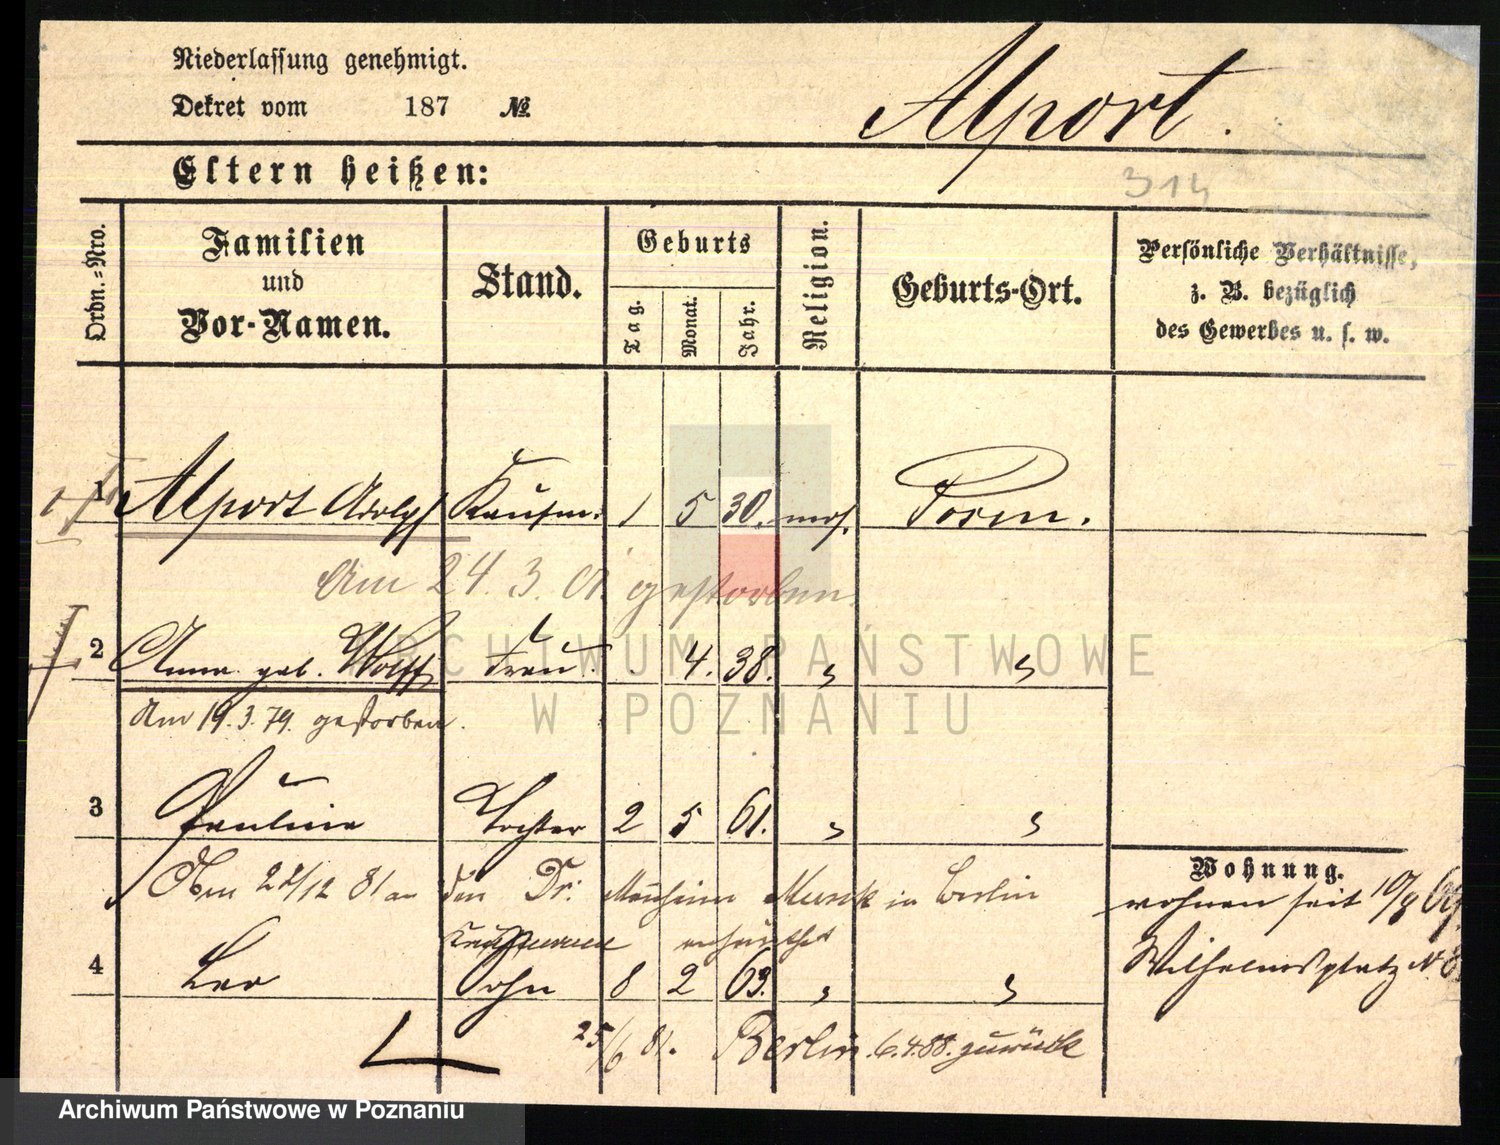 Niederlassung genehmigt.
Dekret vom 187 №
Alport.
Eltern heißen:
314
Ordn.=Nro.
Familien und Vor-Namen.
Stand.
Geburts
Tag.
Monat.
Jahr.
Religion.
Geburts-Ort.
Persönliche Verhältnisse, z. B. bezüglich des Gewerbes u. s. w.
1 Alport Adolf Kaufm. 1 5 30. mos. Posen.
Am 24. 3. 01 gestorben.
2 Anna geb. Wolff Frau. 4. 38. " "
Am 19. 3. 79. gestorben.
3 Pauline Tochter 2 5 61. " "
22/12 81 an den Dr. in Berlin
4 Leo Sohn 8 2 63. " "
Wohnung.
wohnen seit 10/8
Wilhelmsplatz N
25/6 81. Berlin. 6.4.88. zurück
ARCHIWUM PAŃSTWOWE
W POZNANIU
Archiwum Państwowe w Poznaniu